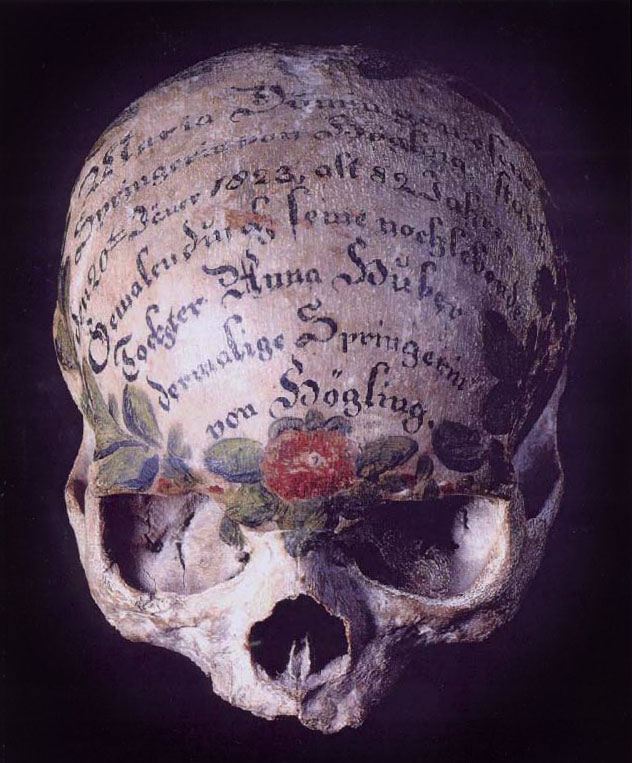 Maria Domin gewesene
Springerin von Högling, starb
den 20ten Jäner 1823, alt 82 Jahre
Gemalen durch seine nochlebend
Tochter Anna Huber
dermalige Springerin
von Högling.